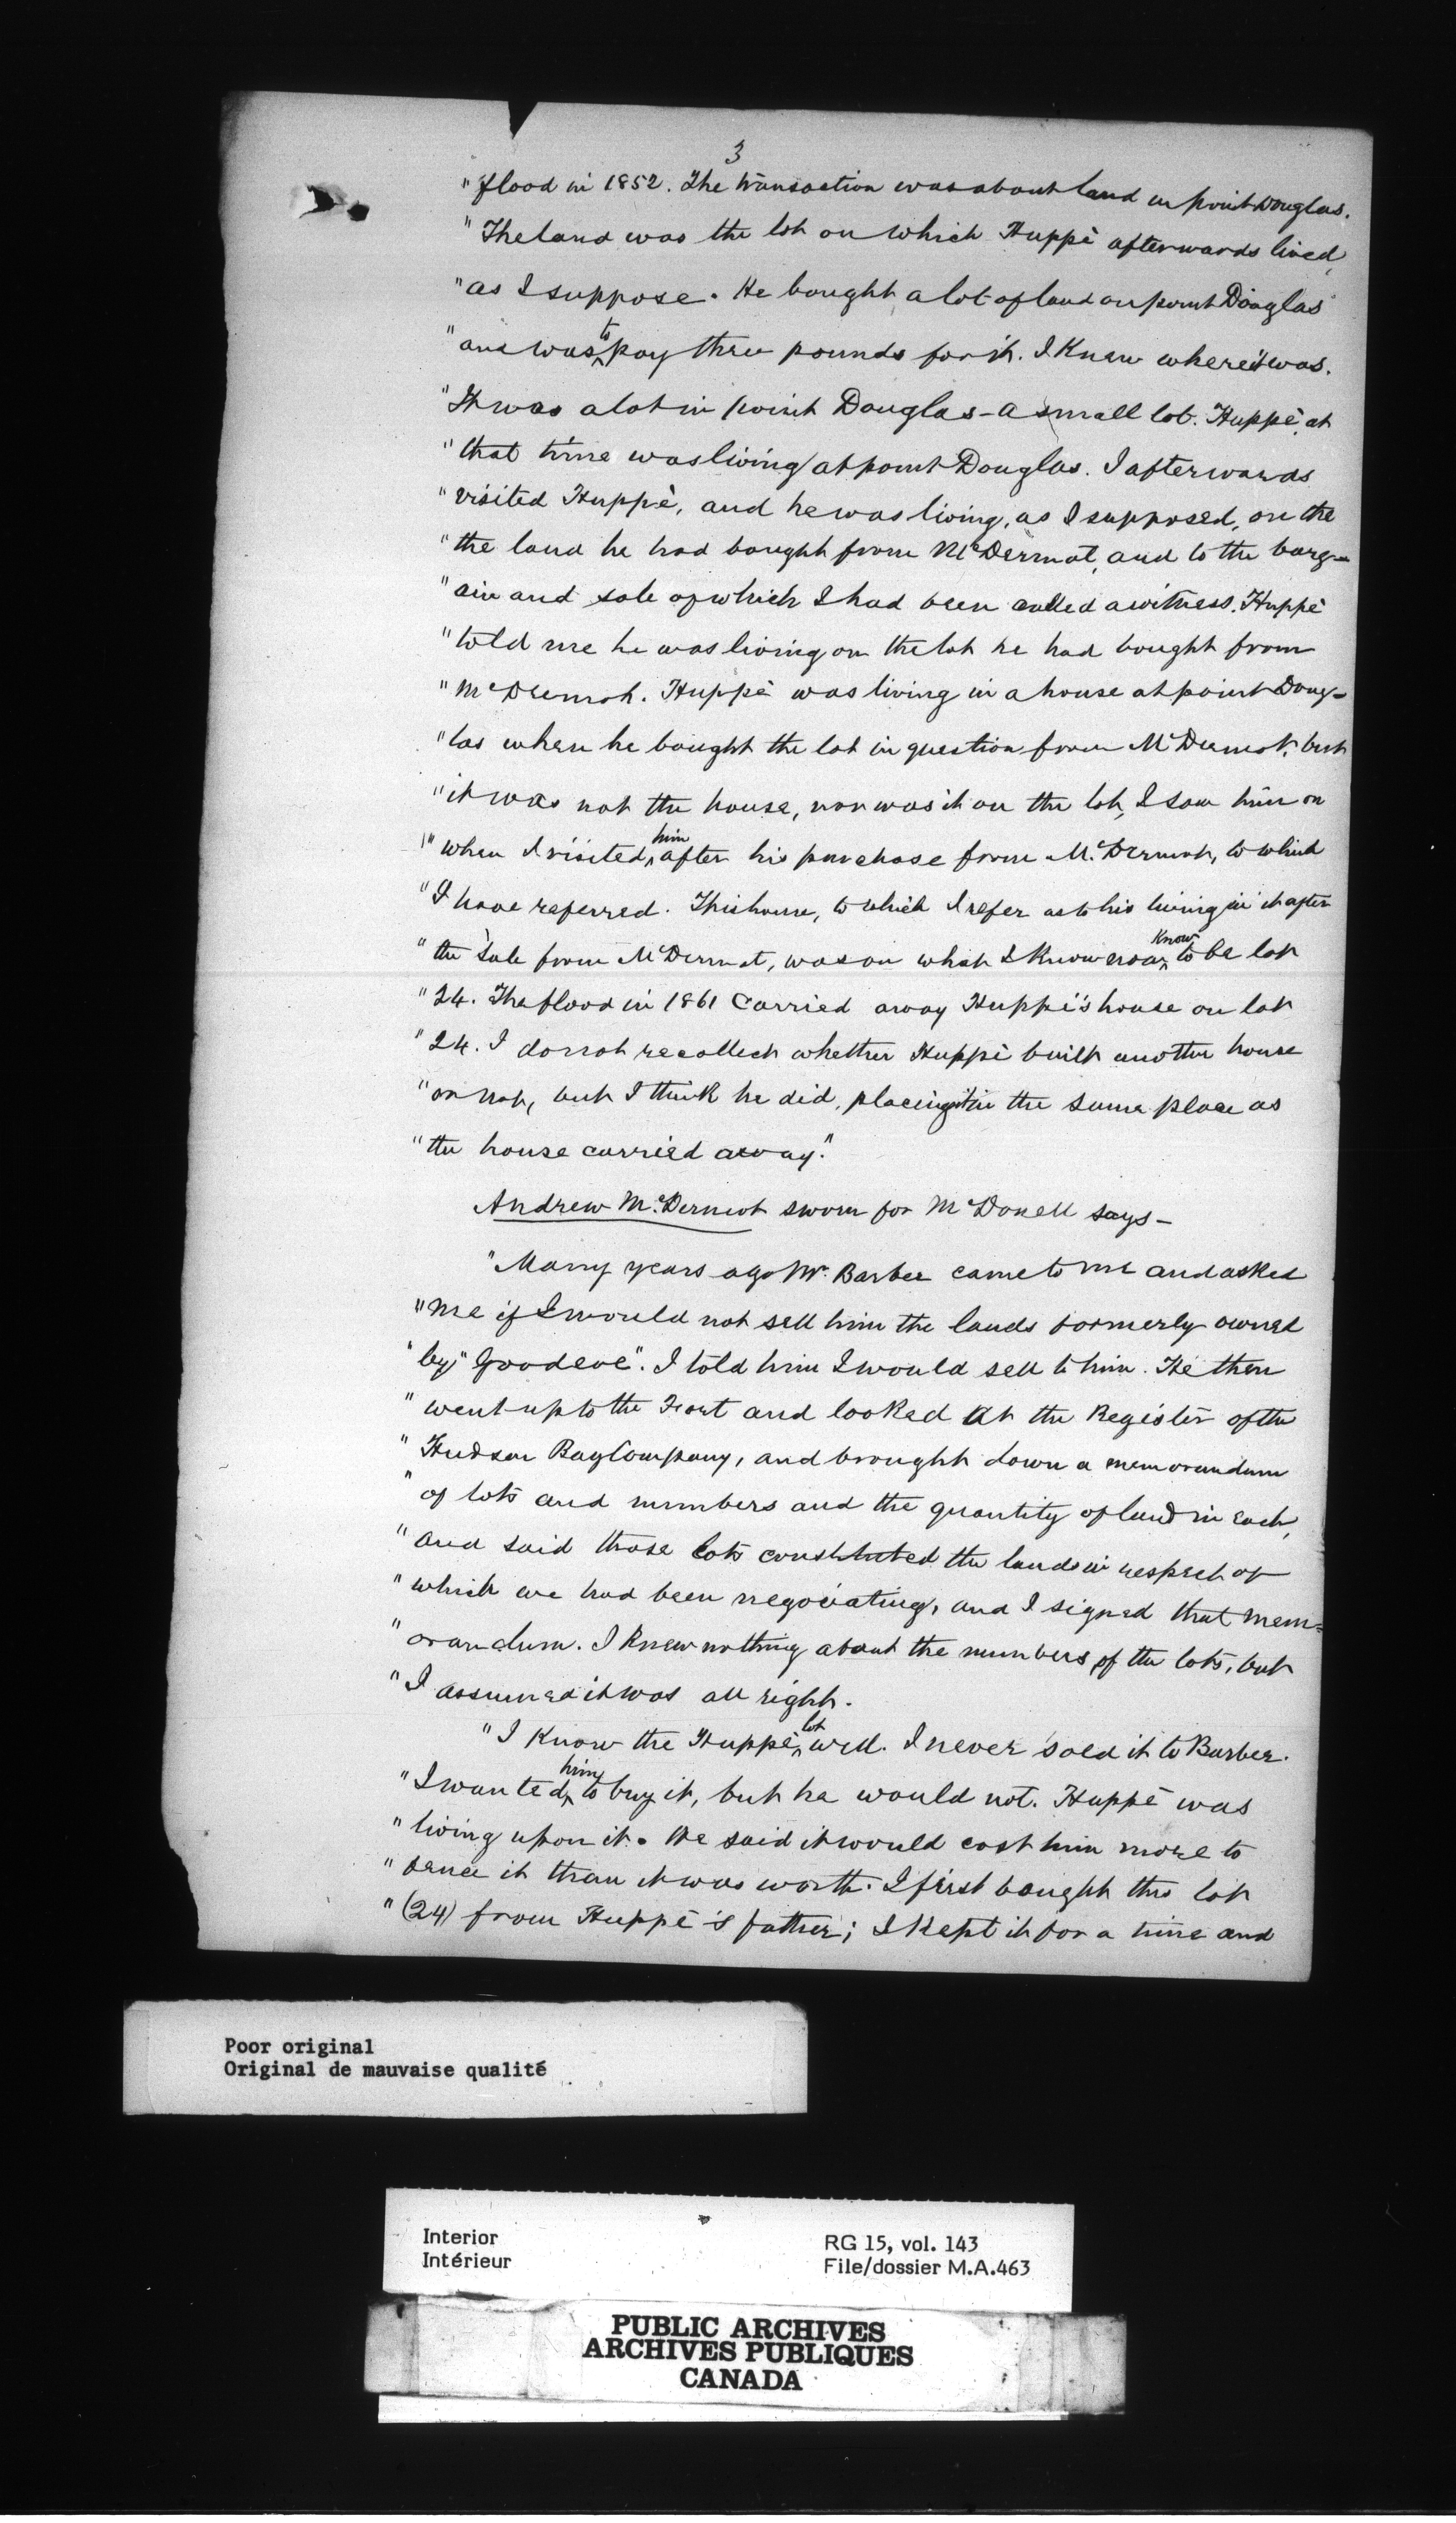 3
" flood in 1852. The transaction was about land in point Douglas.
" The land was the lot on which Huppé afterwards lived,
" as I suppose. He bought a lot of land on point Douglas
" and was to pay three pounds for it. I knew where it was.
" It was a lot in point Douglas - a small lot. Huppé, at
" that time was living at point Douglas. I afterwards
" visited Huppé, and he was living, as I supposed, on the
" the land he had bought from McDermot, and to the barg-
" ain and sale of which I had been called a witness. Huppé
" told me he was living on the lot he had bought from
" McDermot. Huppé was living in a house at point Doug-
" las when he bought the lot in question from McDermot, but
" it was not the house, nor was it on the lot, I saw him on
" when I visited him after his purchase from McDermot, to which
" I have referred. This house, to which I refer as to his living in it after
" the sale from McDermot, was on what I know now know to be lot
" 24. The flood in 1861 carried away Huppé's house on lot
" 24. I do not recollect whether Huppé built another house
" or not, but I think he did, placing it in the same place as
" the house carried away."
Andrew McDermot sworn for McDonell says -
" Many years ago Mr. Barber came to me and asked
" me if I would not sell him the lands formerly owned
" by "Goodeve". I told him I would sell to him. He then
" went up to the Fort and looked at the Register of the
" Hudson Bay Company, and brought down a memorandum
" of lots and numbers and the quantity of land in each,
" and said those lots constituted the lands in respect of
" which we had been negociating, and I signed that mem-
" orandum. I knew nothing about the numbers of the lots, but
" I assumed it was all right.
" I know the Huppé lot well. I never sold it to Barber.
" I wanted him to buy it, but he would not. Huppé was
" living upon it. He said it would cost him more to
" fence it than it was worth. I first bought this lot
" (24) from Huppé's father; I kept it for a time and
Poor original
Original de mauvaise qualité
Interior
Intérieur
RG 15, vol. 143
File/dossier M.A.463
PUBLIC ARCHIVES
ARCHIVES PUBLIQUES
CANADA